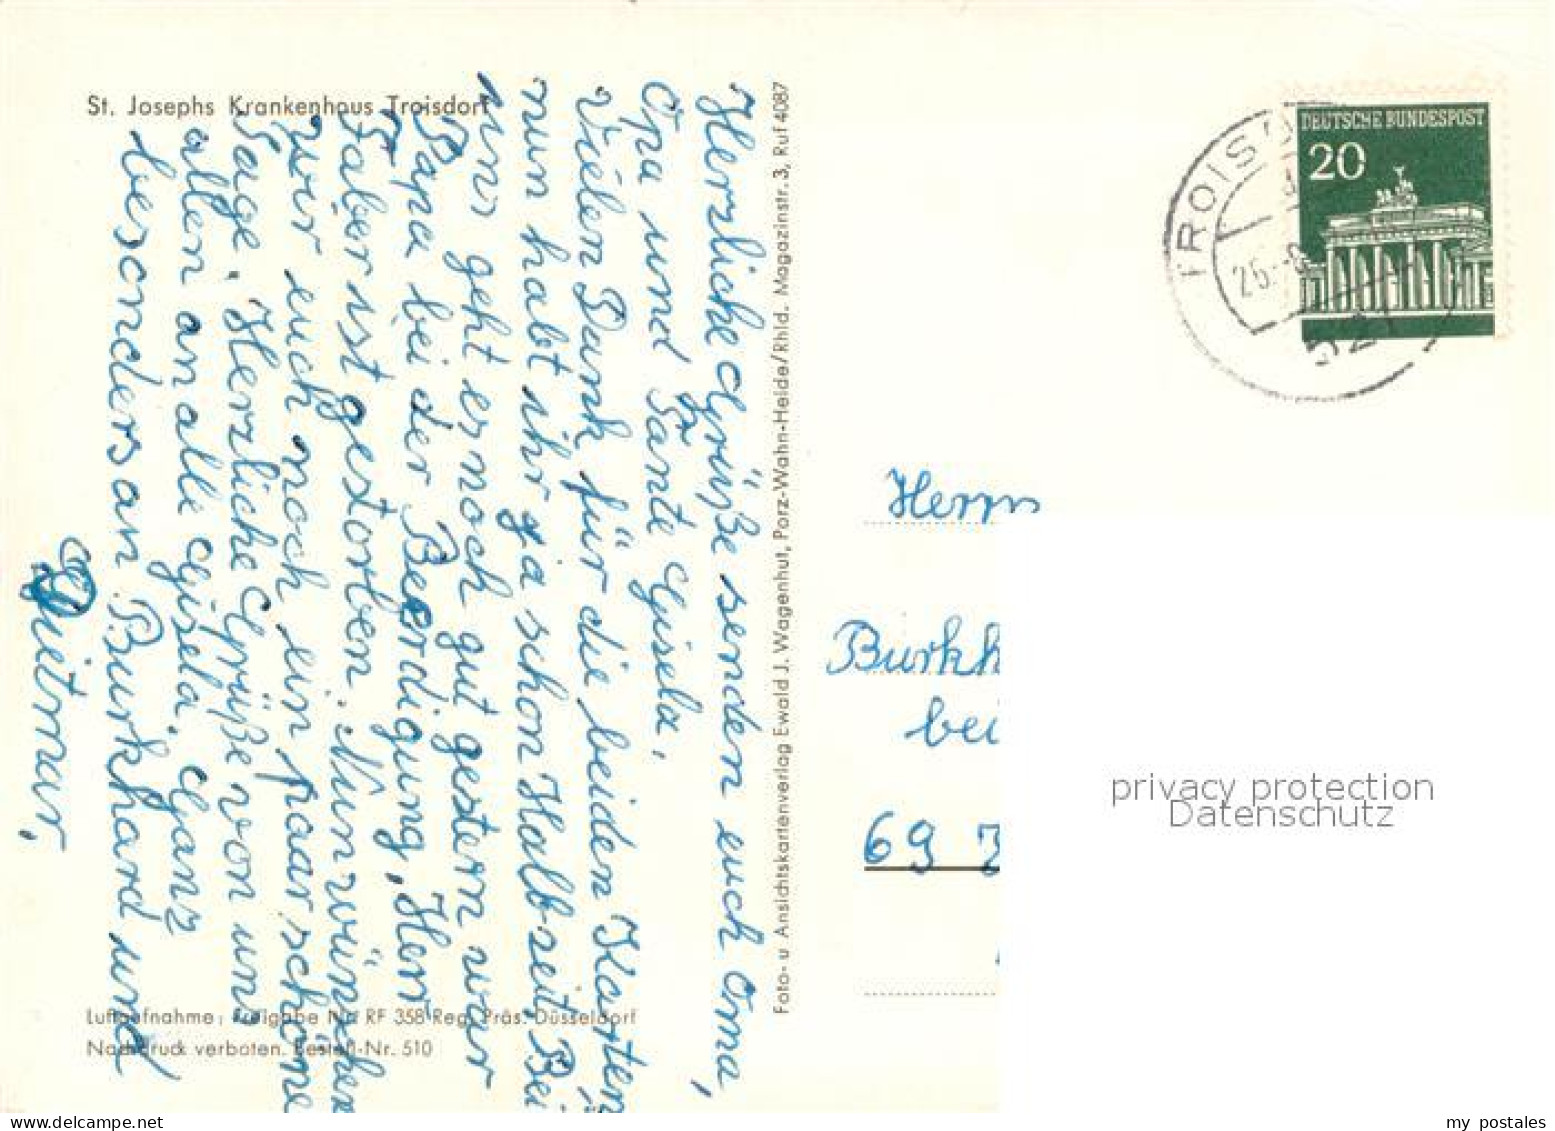 St. Josephs Krankenhaus Troisdorf
Herzliche Grüße senden euch Oma,
Opa und Tante Gisela.
Vielen Dank für die beiden Karten,
nun habt ihr ja schon Halbzeit. Bei
uns geht es noch gut gestern war
Papa bei der Beerdigung, Herr
Faber ist gestorben. Nun wünschen
wir euch noch ein paar schöne
Tage. Herzliche Grüße von uns
allen an alle Gisela. Ganz
besonders an Burkhard und
Dietmar.
Luftaufnahme: Freigabe Nr. RF 358 Reg. Präs. Düsseldorf
Nachdruck verboten. Bestell-Nr. 510
Foto- u Ansichtskartenverlag Ewald J. Wagenhut, Porz-Wahn-Heide/Rhld. Magazinstr. 3, Ruf 4087
DEUTSCHE BUNDESPOST
20
TROISD
521
Herrn
Burkh
bei
69
privacy protection
Datenschutz
my postales